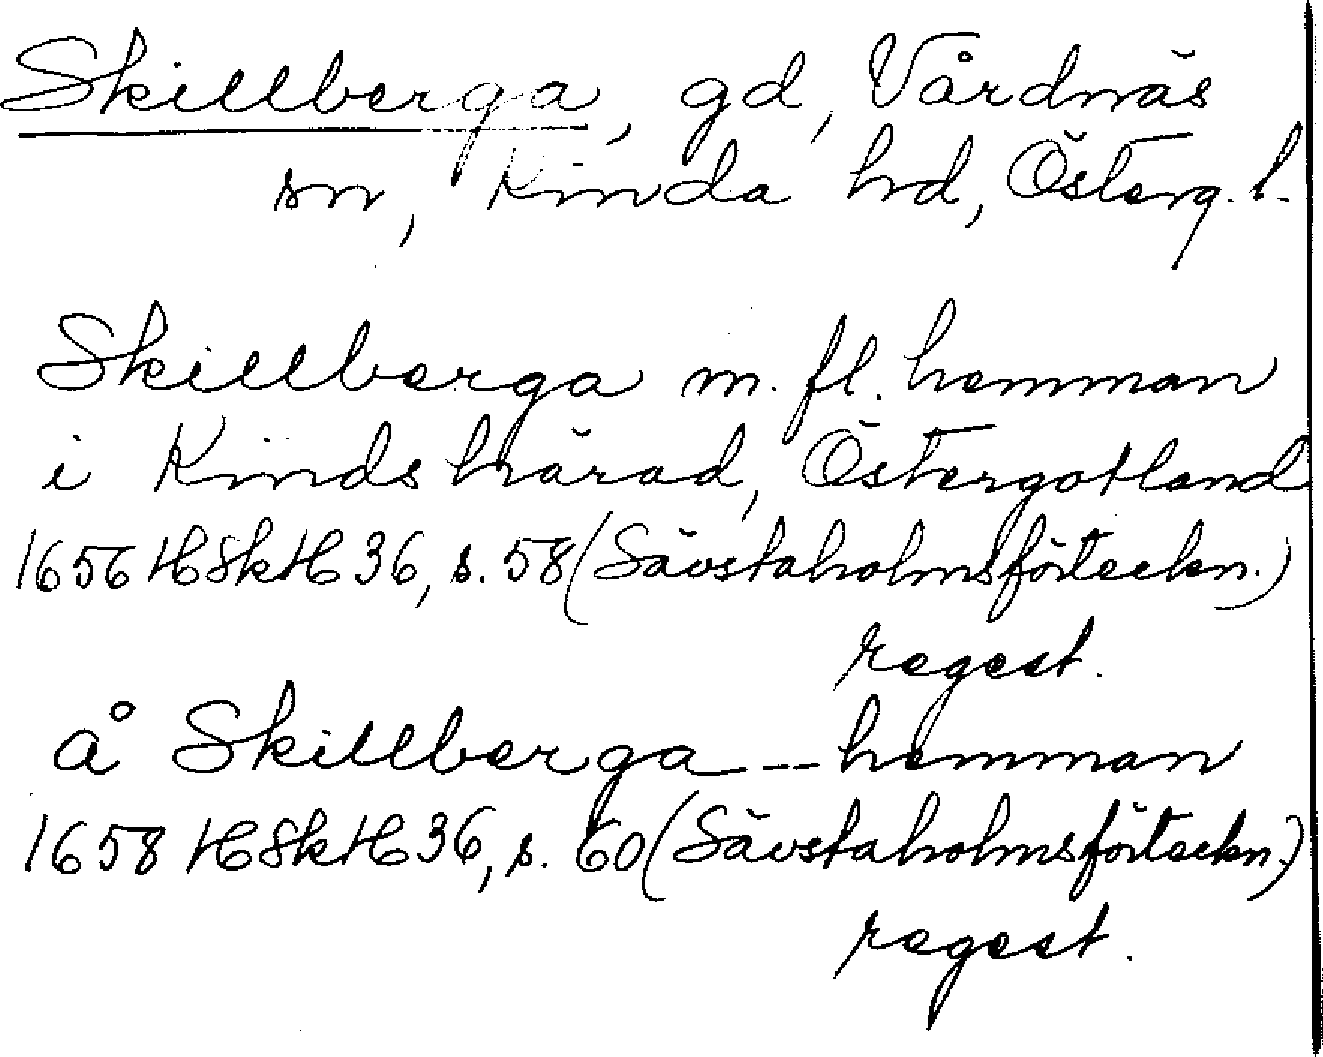 Skillberga, gd, Vårdnäs
sn, Kinda hd, Österg. l.
Skillberga m. fl. hemman
i Kinds härad, Östergotland
1656 HSkH 36, s. 58 (Sävstaholmsförteckn.)
regest.
å Skillberga --- hemman
1658 HSkH 36, s. 60 (Sävstaholmsförteckn.)
regest.